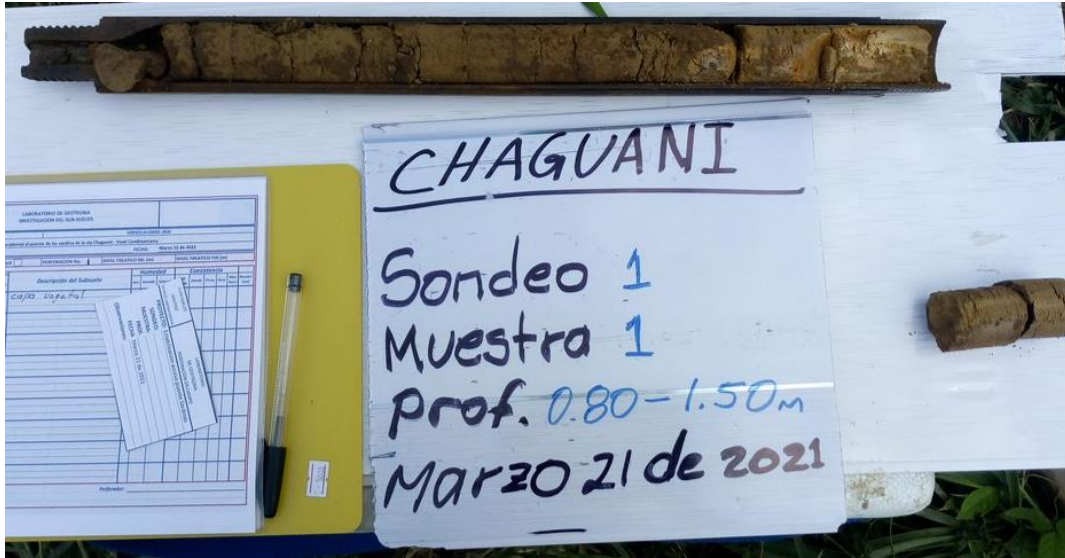 CHAGUANI
Sondeo 1
Muestra 1
Prof. 0.80-1.50m
Marzo 21 de 2021
LABORATORIO DE GEOTECNIA
INVESTIGACION DEL SUB-SUELOS
FECHA: Marzo 21 de 2021
PERFORACION No. 1
Descripción del Subsuelo
Humedad
Consistencia
capa vegetal
Perforador:
PROYECTO:
SONDEO:
MUESTRA:
PROF:
FECHA: Marzo 21 de 2021
Observaciones: